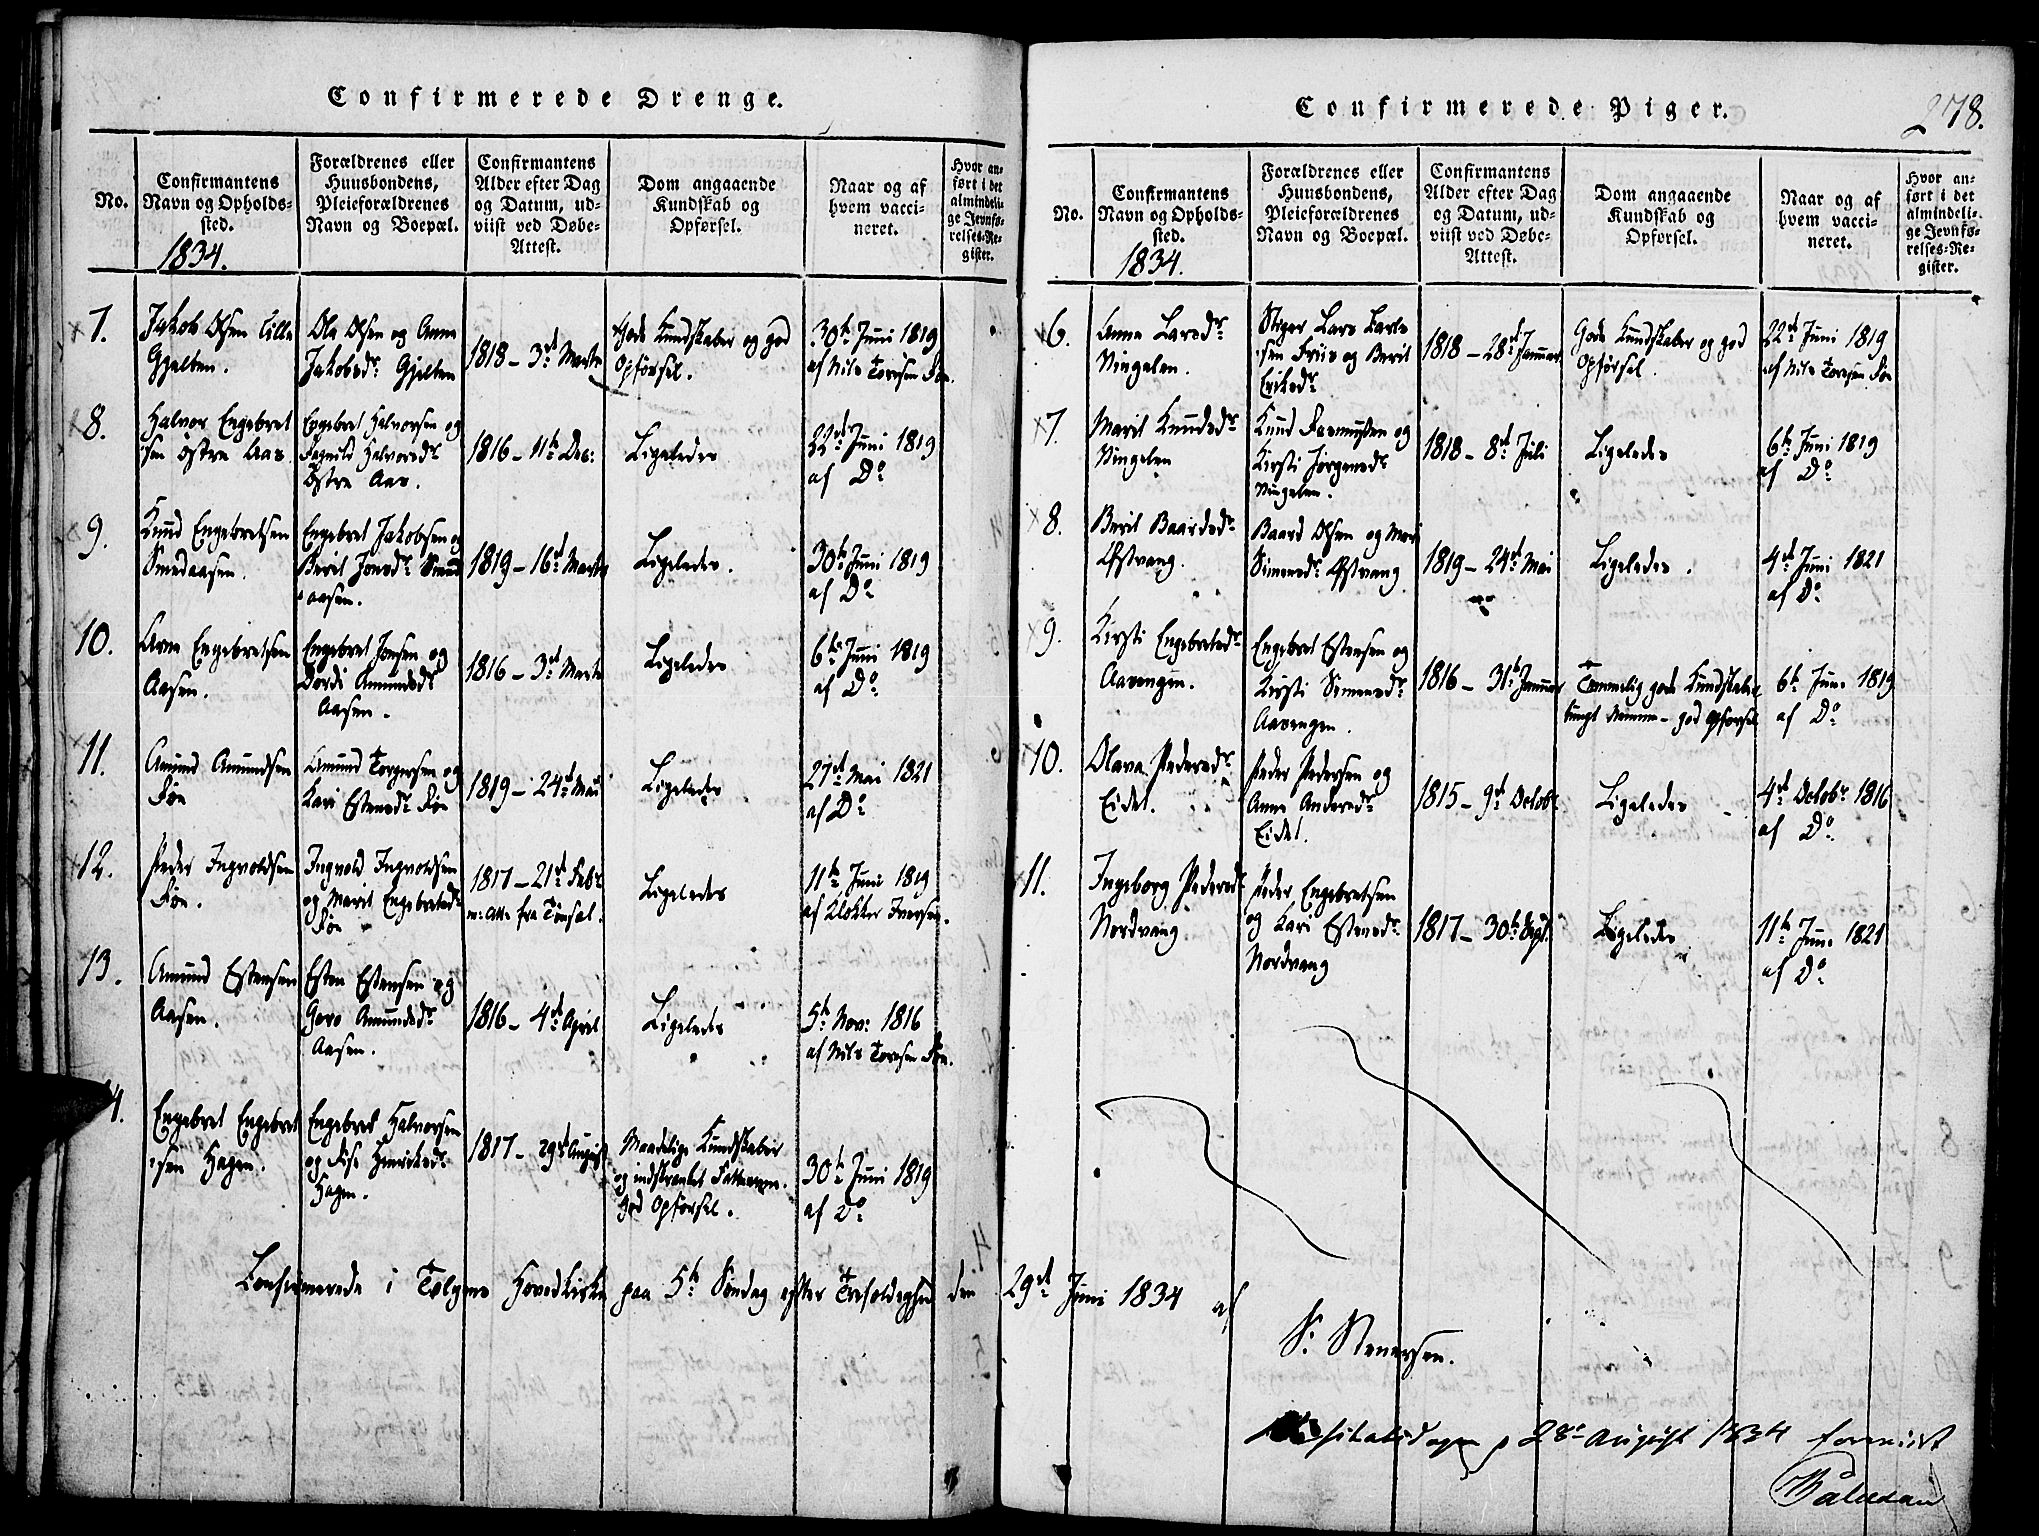 Confirmerede Drenge.
No.
Confirmantens
Navn og Opholds-
sted.
1834.
Forældrenes eller
Huusbondens,
Pleieforældrenes
Navn og Boepæl.
Confirmantens
Alder efter Dag
og Datum, ud-
viist ved Døbe-
Attest.
Dom angaaende
Kundskab og
Opførsel.
Naar og af
hvem vacci-
neret.
Hvor an-
ført i det
almindeli-
ge Jevnfø-
relses-Re-
gister.
7.
Jakob Olsen Lille
Gjelten.
Ola Olsen og Anne
Jakobsdr. Gjelten
1818 - 3d Marts
Gode Kundskaber og god
Opførsel.
30te Juni 1819
af Nils Toresen Føn.
8.
Halvor Engebret
sen Østre Aas
Engebret Halvorsen og
Ragnild Halvorsdr.
Østre Aas.
1816 - 11te Dec:
Ligeledes
22d Juni 1819
af Do
9.
Knud Engebretsen
Smedaasen.
Engebret Jakobsen og
Berit Jonsdr. Smed
aasen.
1819 - 16d Marts
Ligeledes.
30te Juni 1819
af Do
10.
Arne Engebretsen
Aasen.
Engebret Jonsen og
Dordi Amundsdr
Aasen.
1816 - 3d Marts
Ligeledes
6te Juni 1819
af Do
11.
Amund Amundsen
Føn
Amund Torgersen og
Kari Estensdr. Føn
1819 - 24d Mai
Ligeledes
27d Mai 1821
af Do
12.
Peder Ingvoldsen
Føn.
Ingvold Ingvoldsen
og Marit Engebretsdr
Føn
1817 - 21d Febr
m: Att: fra Tønset.
Ligeledes
11te Juni 1819
af Klokker Iversen.
13.
Amund Estensen
Aasen.
Esten Estensen og
Goro Amundsdr.
Aasen.
1816 - 4d April
Ligeledes
5te Nov: 1816
af Nils Toresen Føn.
4.
Engebret Engebret
sen Hagen.
Engebret Halvorsen
og Henriksdr.
Hagen.
1817 - 29d August
Maadelige Kundskaber
og indskrænket Fatteevne.
God Opførsel.
30te Juni 1819
af Do
Confirmerede i Tolgens Hovedkirke paa 5te Søndag efter Trefoldighed den 29d Juni 1834 af
S. Stenersen.
Confirmerede Piger.
278.
No.
Confirmantens
Navn og Opholds-
sted.
1834.
Forældrenes eller
Huusbondens,
Pleieforældrenes
Navn og Boepæl.
Confirmantens
Alder efter Dag
og Datum, ud-
viist ved Døbe-
Attest.
Dom angaaende
Kundskab og
Opførsel.
Naar og af
hvem vacci-
neret.
Hvor an-
ført i det
almindeli-
ge Jevnfø-
relses-Re-
gister.
6.
Anne Larsdr.
Vingelen.
Stiger Lars Larsen
Friis og Berit
Eriksdr.
1818 - 28d Januar
Gode Kundskaber og god
Opførsel.
22d Juni 1819
af Nils Toresen Føn
7.
Marit Knudsdr.
Vingelen
Knud Rasmussen og
Kirsti Jørgensdr
Vingelen.
1818 - 8d Juli
Ligeledes
6te Juni 1819
af Do
8.
Berit Baardsdr.
Østvang.
Baard Olsen og Mari
Simensdr. Østvang
1819 - 24d Mai
Ligeledes.
4d Juni 1821
af Do
9.
Kirsti Engebretsdr.
Aasengen.
Engebret Estensen og
Kirsti Simensdr.
Aasengen.
1816 - 31te Januar
Temmelig gode Kundskaber
tungt Nemme - god Opførsel
6te Juni 1819
af Do
10.
Olava Pedersdr.
Eidet.
Peder Pedersen og
Anne Andersdr.
Eidet.
1815 - 9d Octobr
Ligeledes
4d Octobr 1816
af Do
11.
Ingeborg Pedersdr
Nordvang
Peder Engebretsen
og Kari Estensdr.
Nordvang
1817 - 30te Sept.
Ligeledes
11te Juni 1821
af Do
28d August 1834 foreviist